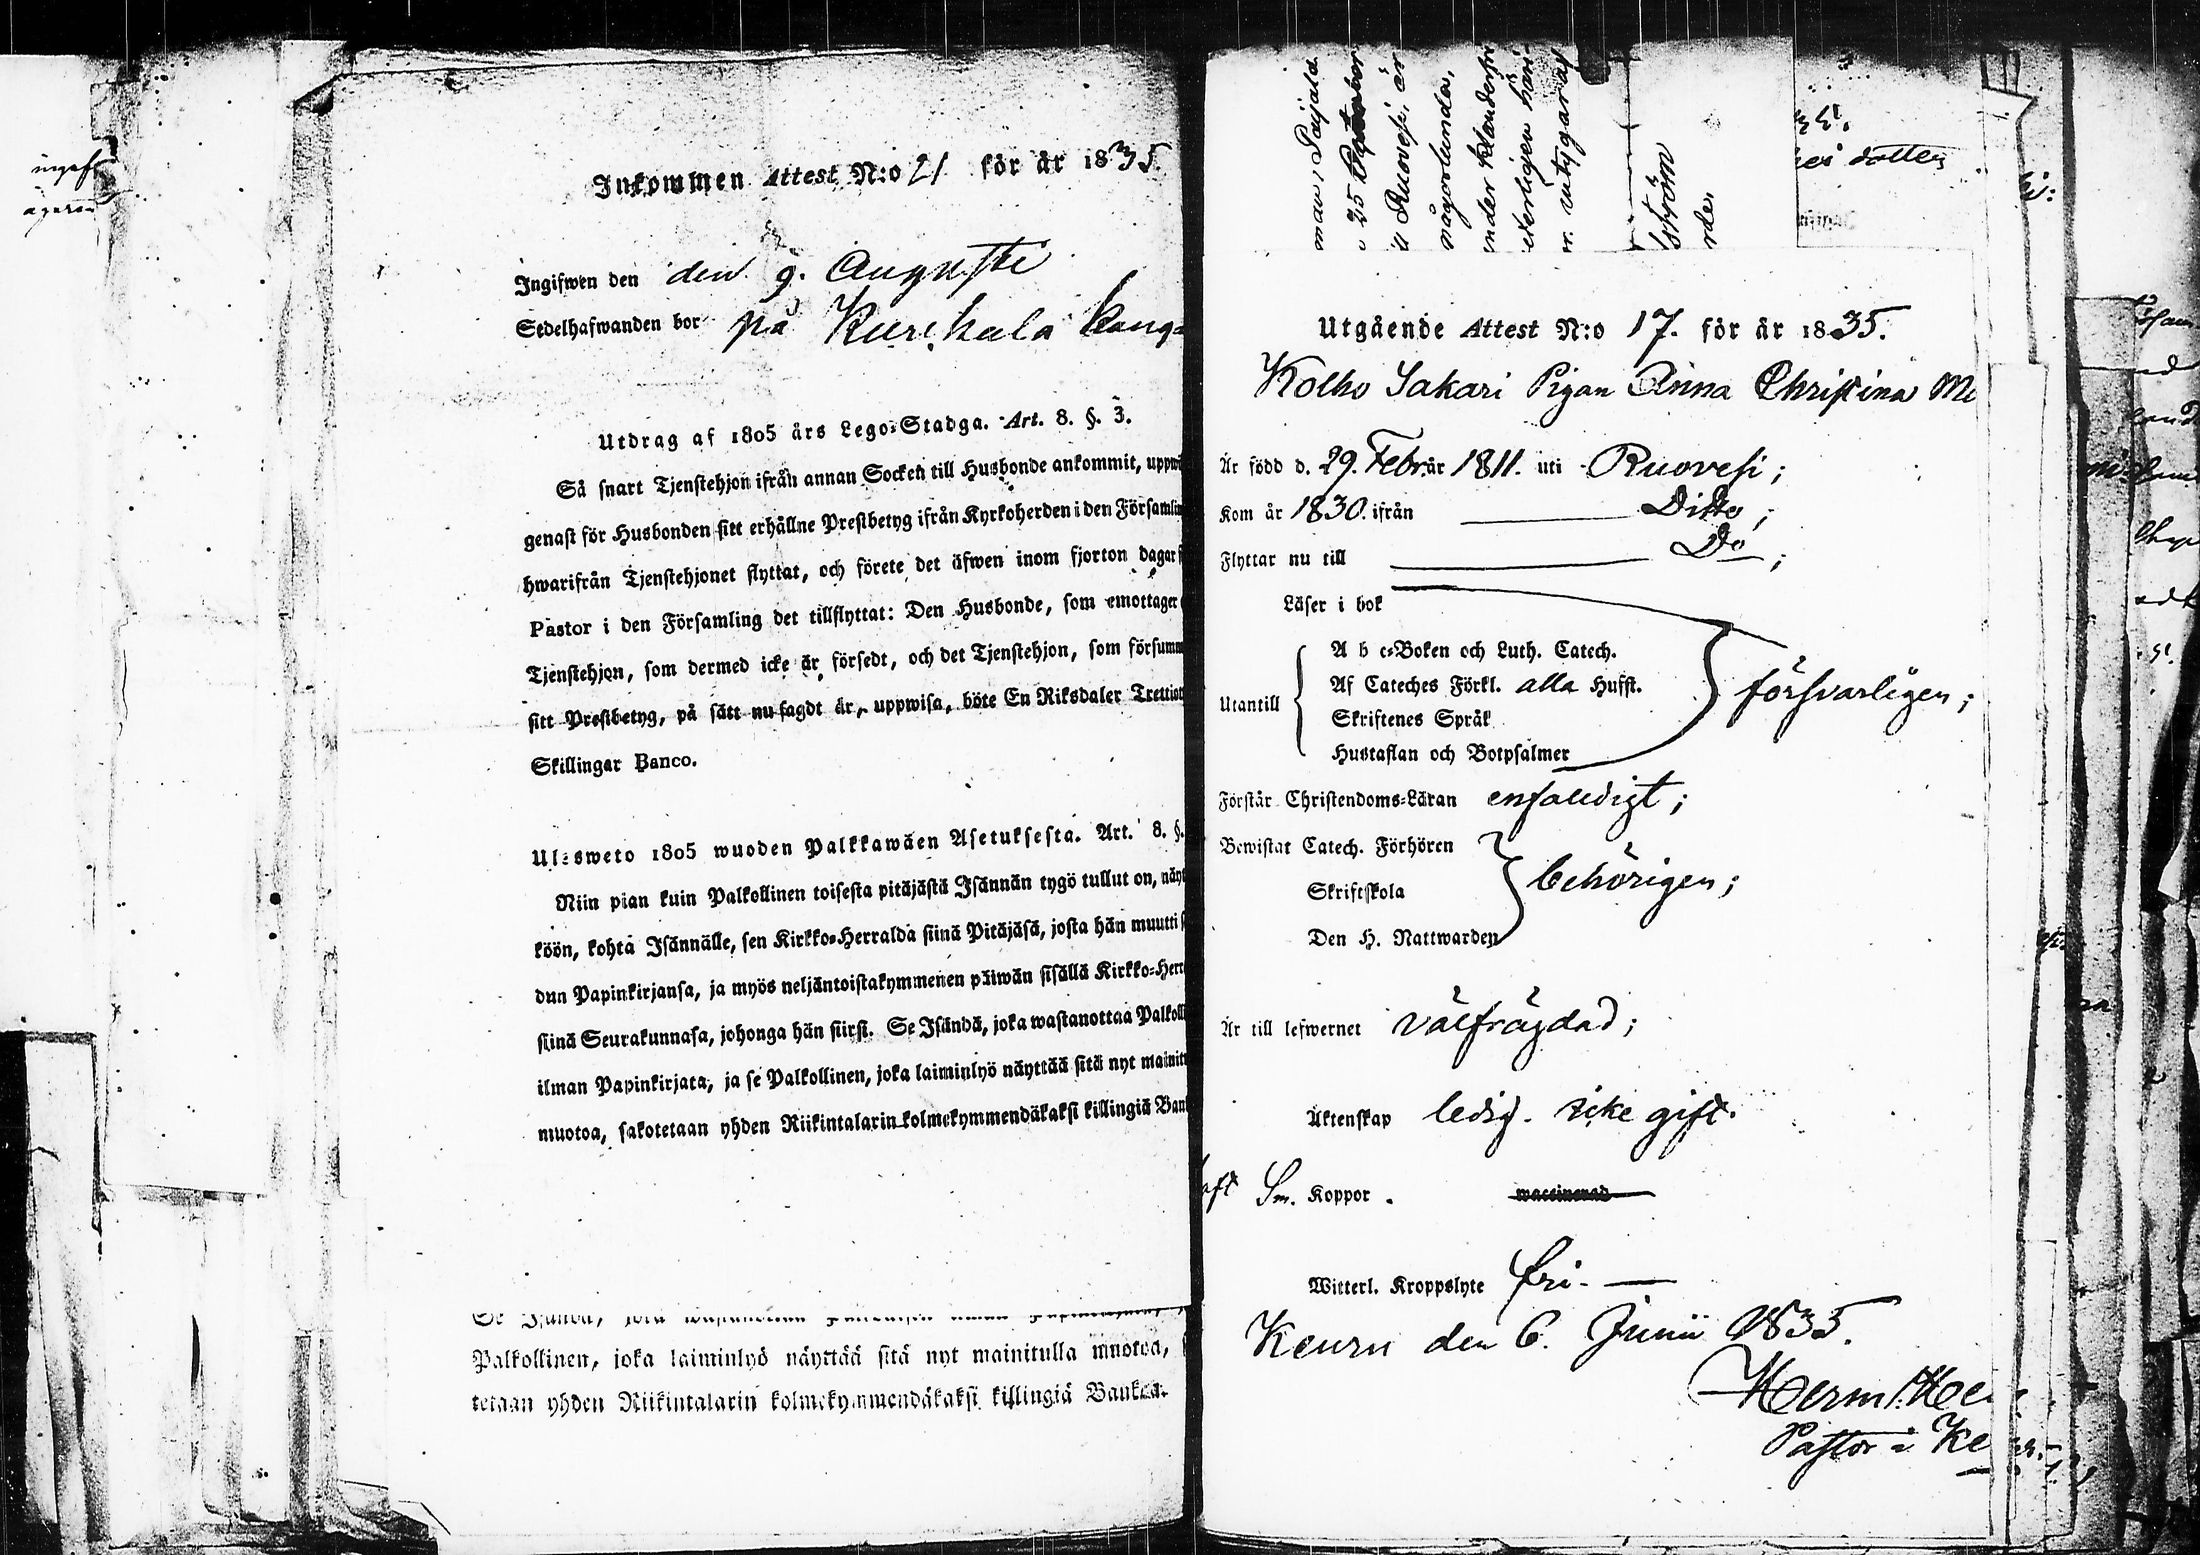 Inkommen Attest N:o 21 för år 1835.
Ingifwen den den 9. Augusti
Sedelhafwanden bor på
Utdrag af 1805 års Lego-Stadga. Art. 8. §. 3.
Så snart Tjenstehjon ifrån annan Socken till Husbonde ankommit, uppwi
genast för Husbonden sitt erhållne Prestbetyg ifrån Kyrkoherden i den Församlin
hwarifrån Tjenstehjonet flyttat, och förete det äfwen inom fjorton dagar f
Pastor i den Församling det tillflyttat: Den Husbonde, som emottager
Tjenstehjon, som dermed icke är försedt, och det Tjenstehjon, som försumm
sitt Prestbetyg, på sätt nu sagdt är, uppwisa, böte En Riksdaler Trettiot
Skillingar Banco.
Ulosweto 1805 wuoden Palkkawäen Asetuksesta. Art. 8. §.
Niin pian kuin Palkollinen toisesta pitäjästä Isännän tygö tullut on, näyt
köön, kohta Isännälle, sen Kirkko-Herralda siinä Pitäjäsä, josta hän muutti s
dun Papinkirjansa, ja myös neljäntoistakymmenen päiwän sisällä Kirkko-Herr
siinä Seurakunnasa, johonga hän siirsi. Se Isändä, joka wastanottaa Palkolli
ilman Papinkirjata, ja se Palkollinen, joka laiminlyö näyttää sitä nyt mainitt
muotoa, sakotetaan yhden Riikintalarin kolmekymmendäkaksi killingiä Bank
Palkollinen, joka laiminlyö näyttää sitä nyt mainitulla muotoa,
tetaan yhden Riikintalarin kolmekymmendäkaksi killingiä Bankoa.
någorlunda,
ström
dotter
Utgående Attest N:o 17. för år 1835.
Kolho Sakari Pigan Anna Christina M
Är född d. 29. Febr. år 1811. uti Ruovesi;
Kom år 1830. ifrån Ditto;
Flyttar nu till Do;
Läser i bok
A b c-Boken och Luth. Catech.
Af Cateches Förkl. alla Hufst.
Utantill försvarligen;
Skriftenes Språk
Hustaflan och Botpsalmer
Förstår Christendoms-Läran enfaldigt;
Bewistat Catech. Förhören
Skriftskola behörigen;
Den H. Nattwarden
Är till lefwernet välfrägdad;
Äktenskap ledig. icke gift.
Sm. Koppor. waccinerad
Witterl. Kroppslyte fri.
Keuru den 6. Junii 1835.
Herm.
Pastor i Ke